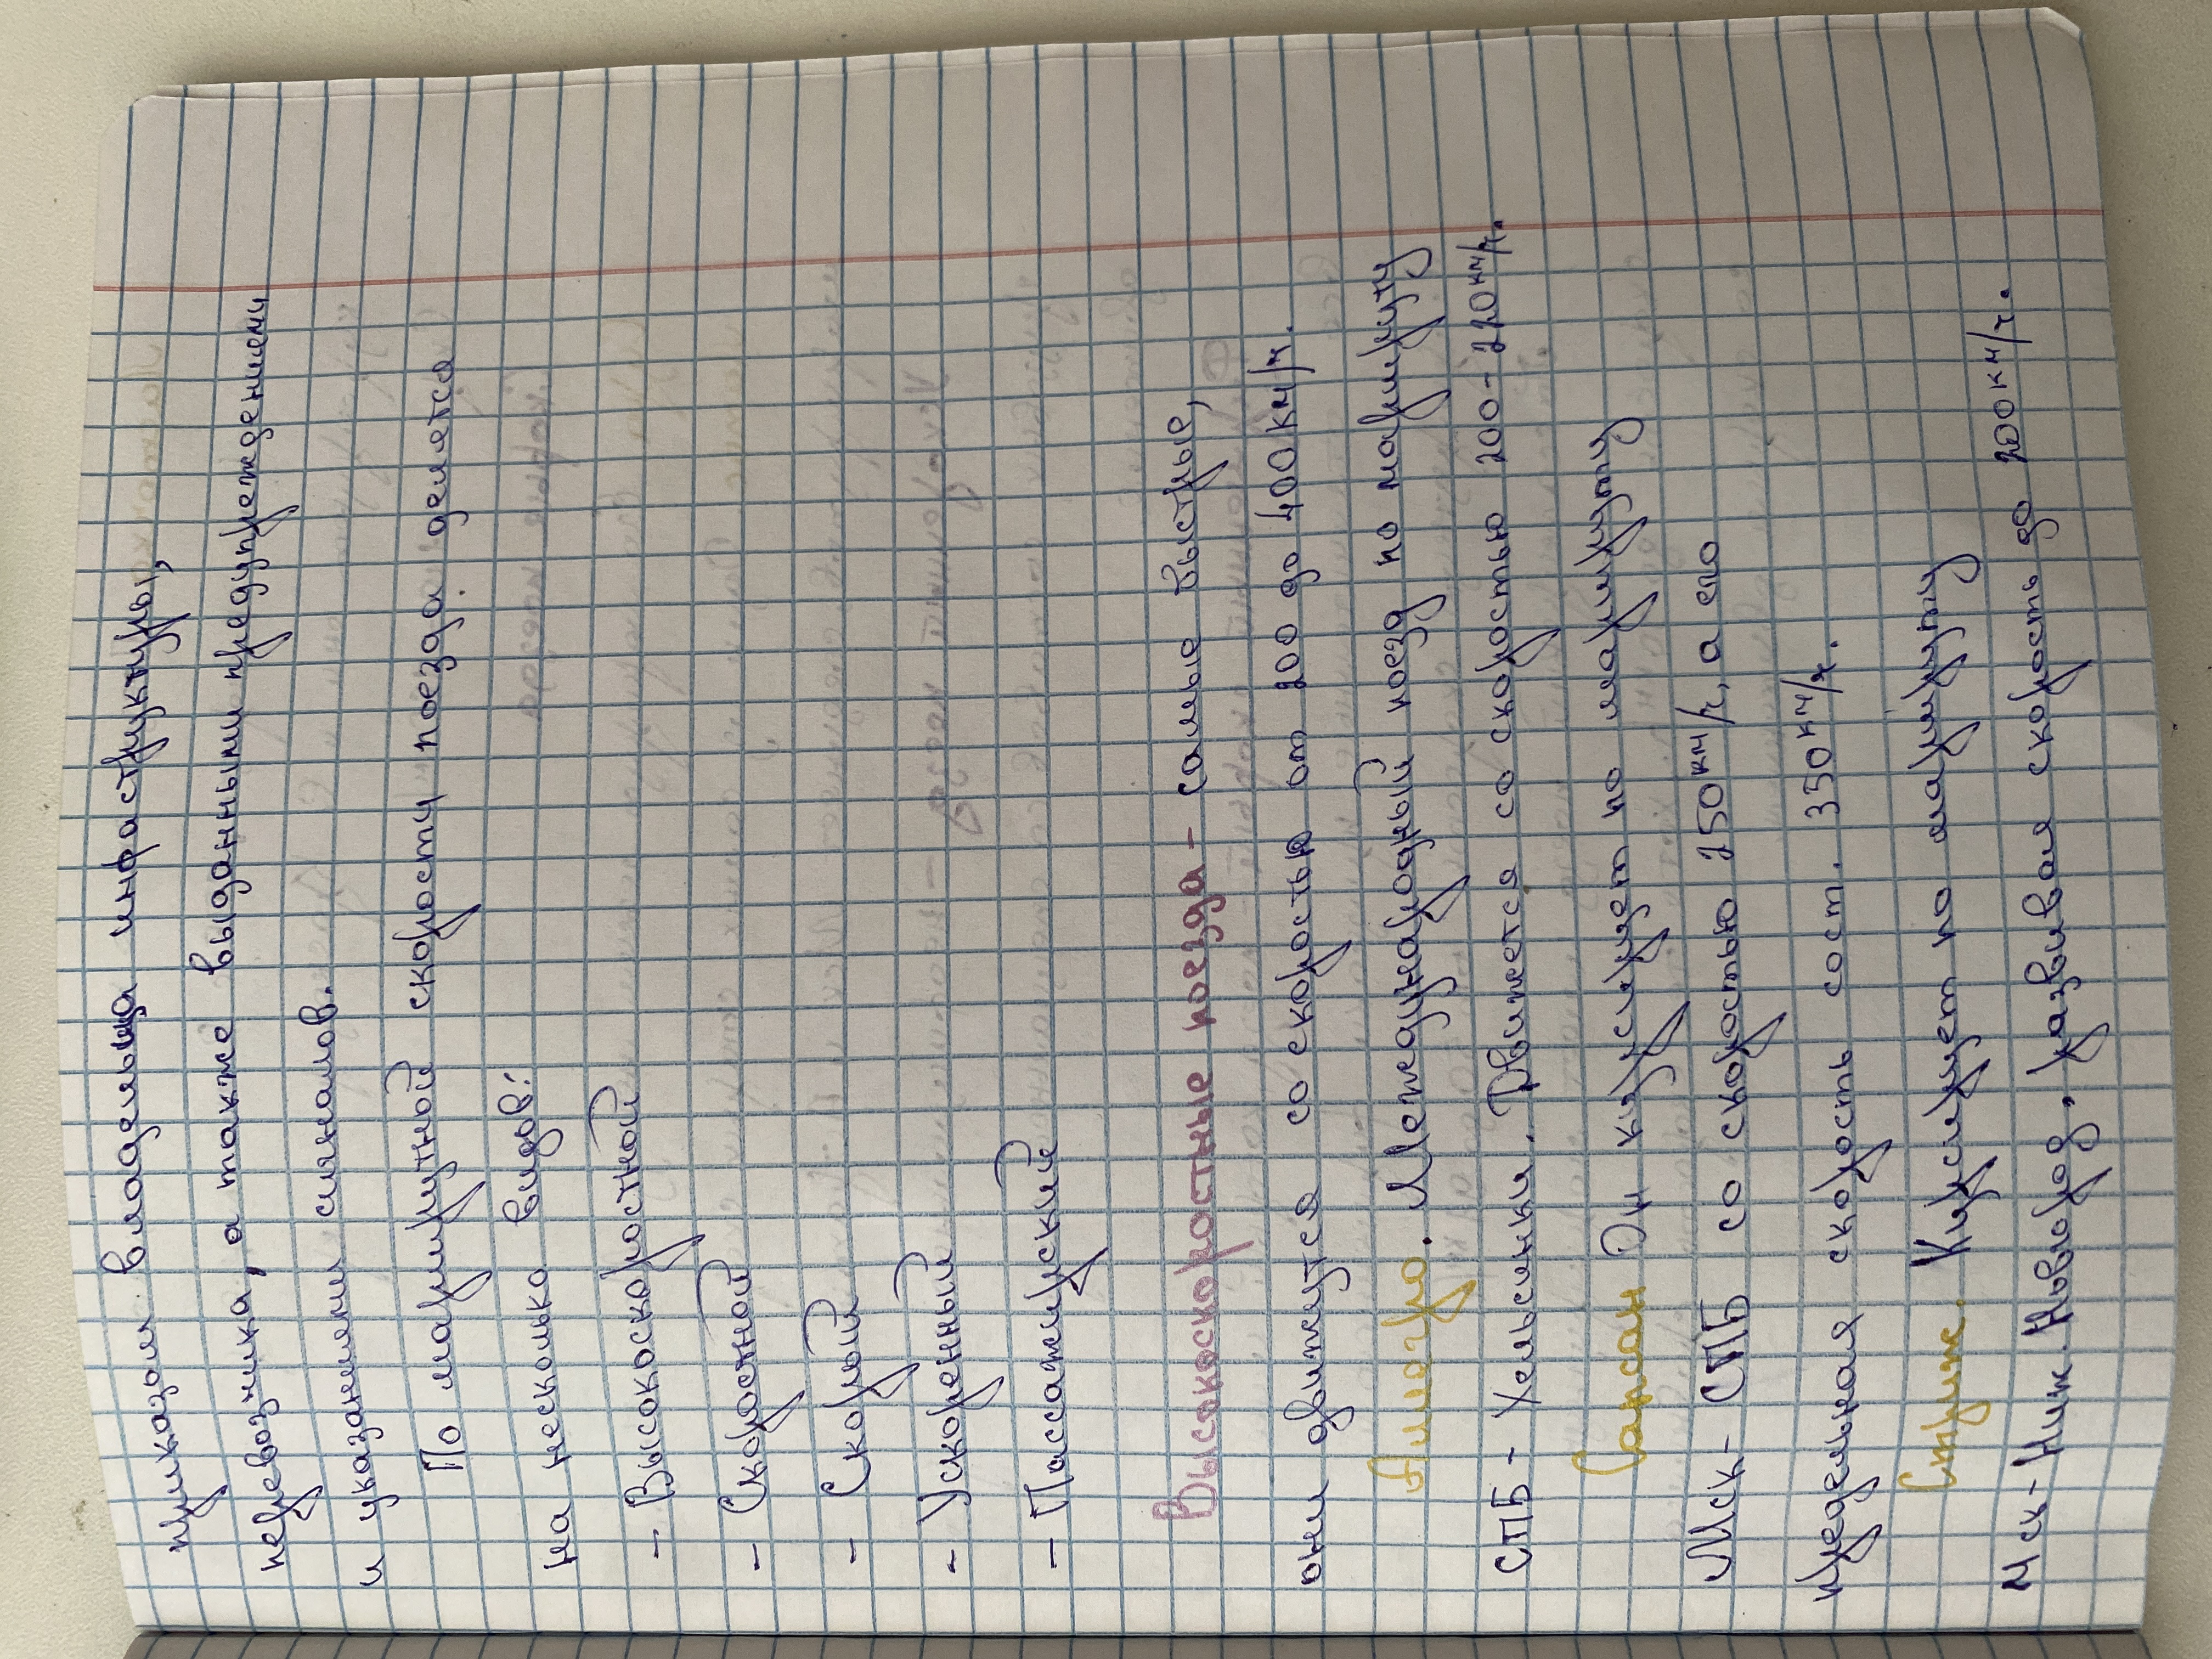 приказом владельца инфраструктуры,
перевозчика, а также выданными предупреждениями
и указаниями сигналов.
По маршрутной скорости поезда делятся
на несколько видов:
- Высокоскоростной
- Скоростной
- Скорый
- Ускоренный
- Пассажирский
Высокоскоростные поезда - самые быстрые,
они движутся со скоростью от 200 до 400 км/ч.
Аллегро. Международный поезд по маршруту
СПБ - Хельсинки. Движется со скоростью 200-220 км/ч.
Сапсан Он курсирует по маршруту
Мск - СПБ со скоростью 250 км/ч, а его
предельная скорость сост. 350 км/ч.
Стриж. Курсирует по маршруту
Мск - Ниж. Новгород, развивая скорость до 200 км/ч.